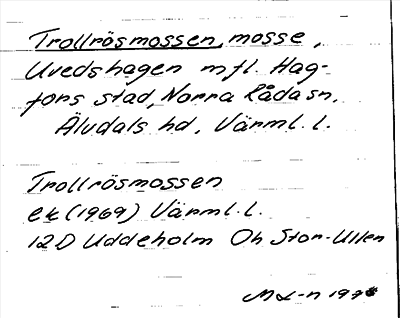 Trollrösmossen, mosse,
Uvedshagen m fl. Hag-
fors stad, Norra Råda sn,
Älvdals hd, Värml. l.
Trollrösmossen
ek (1969) Värml. l.
12D Uddeholm Oh Stor-Ullen